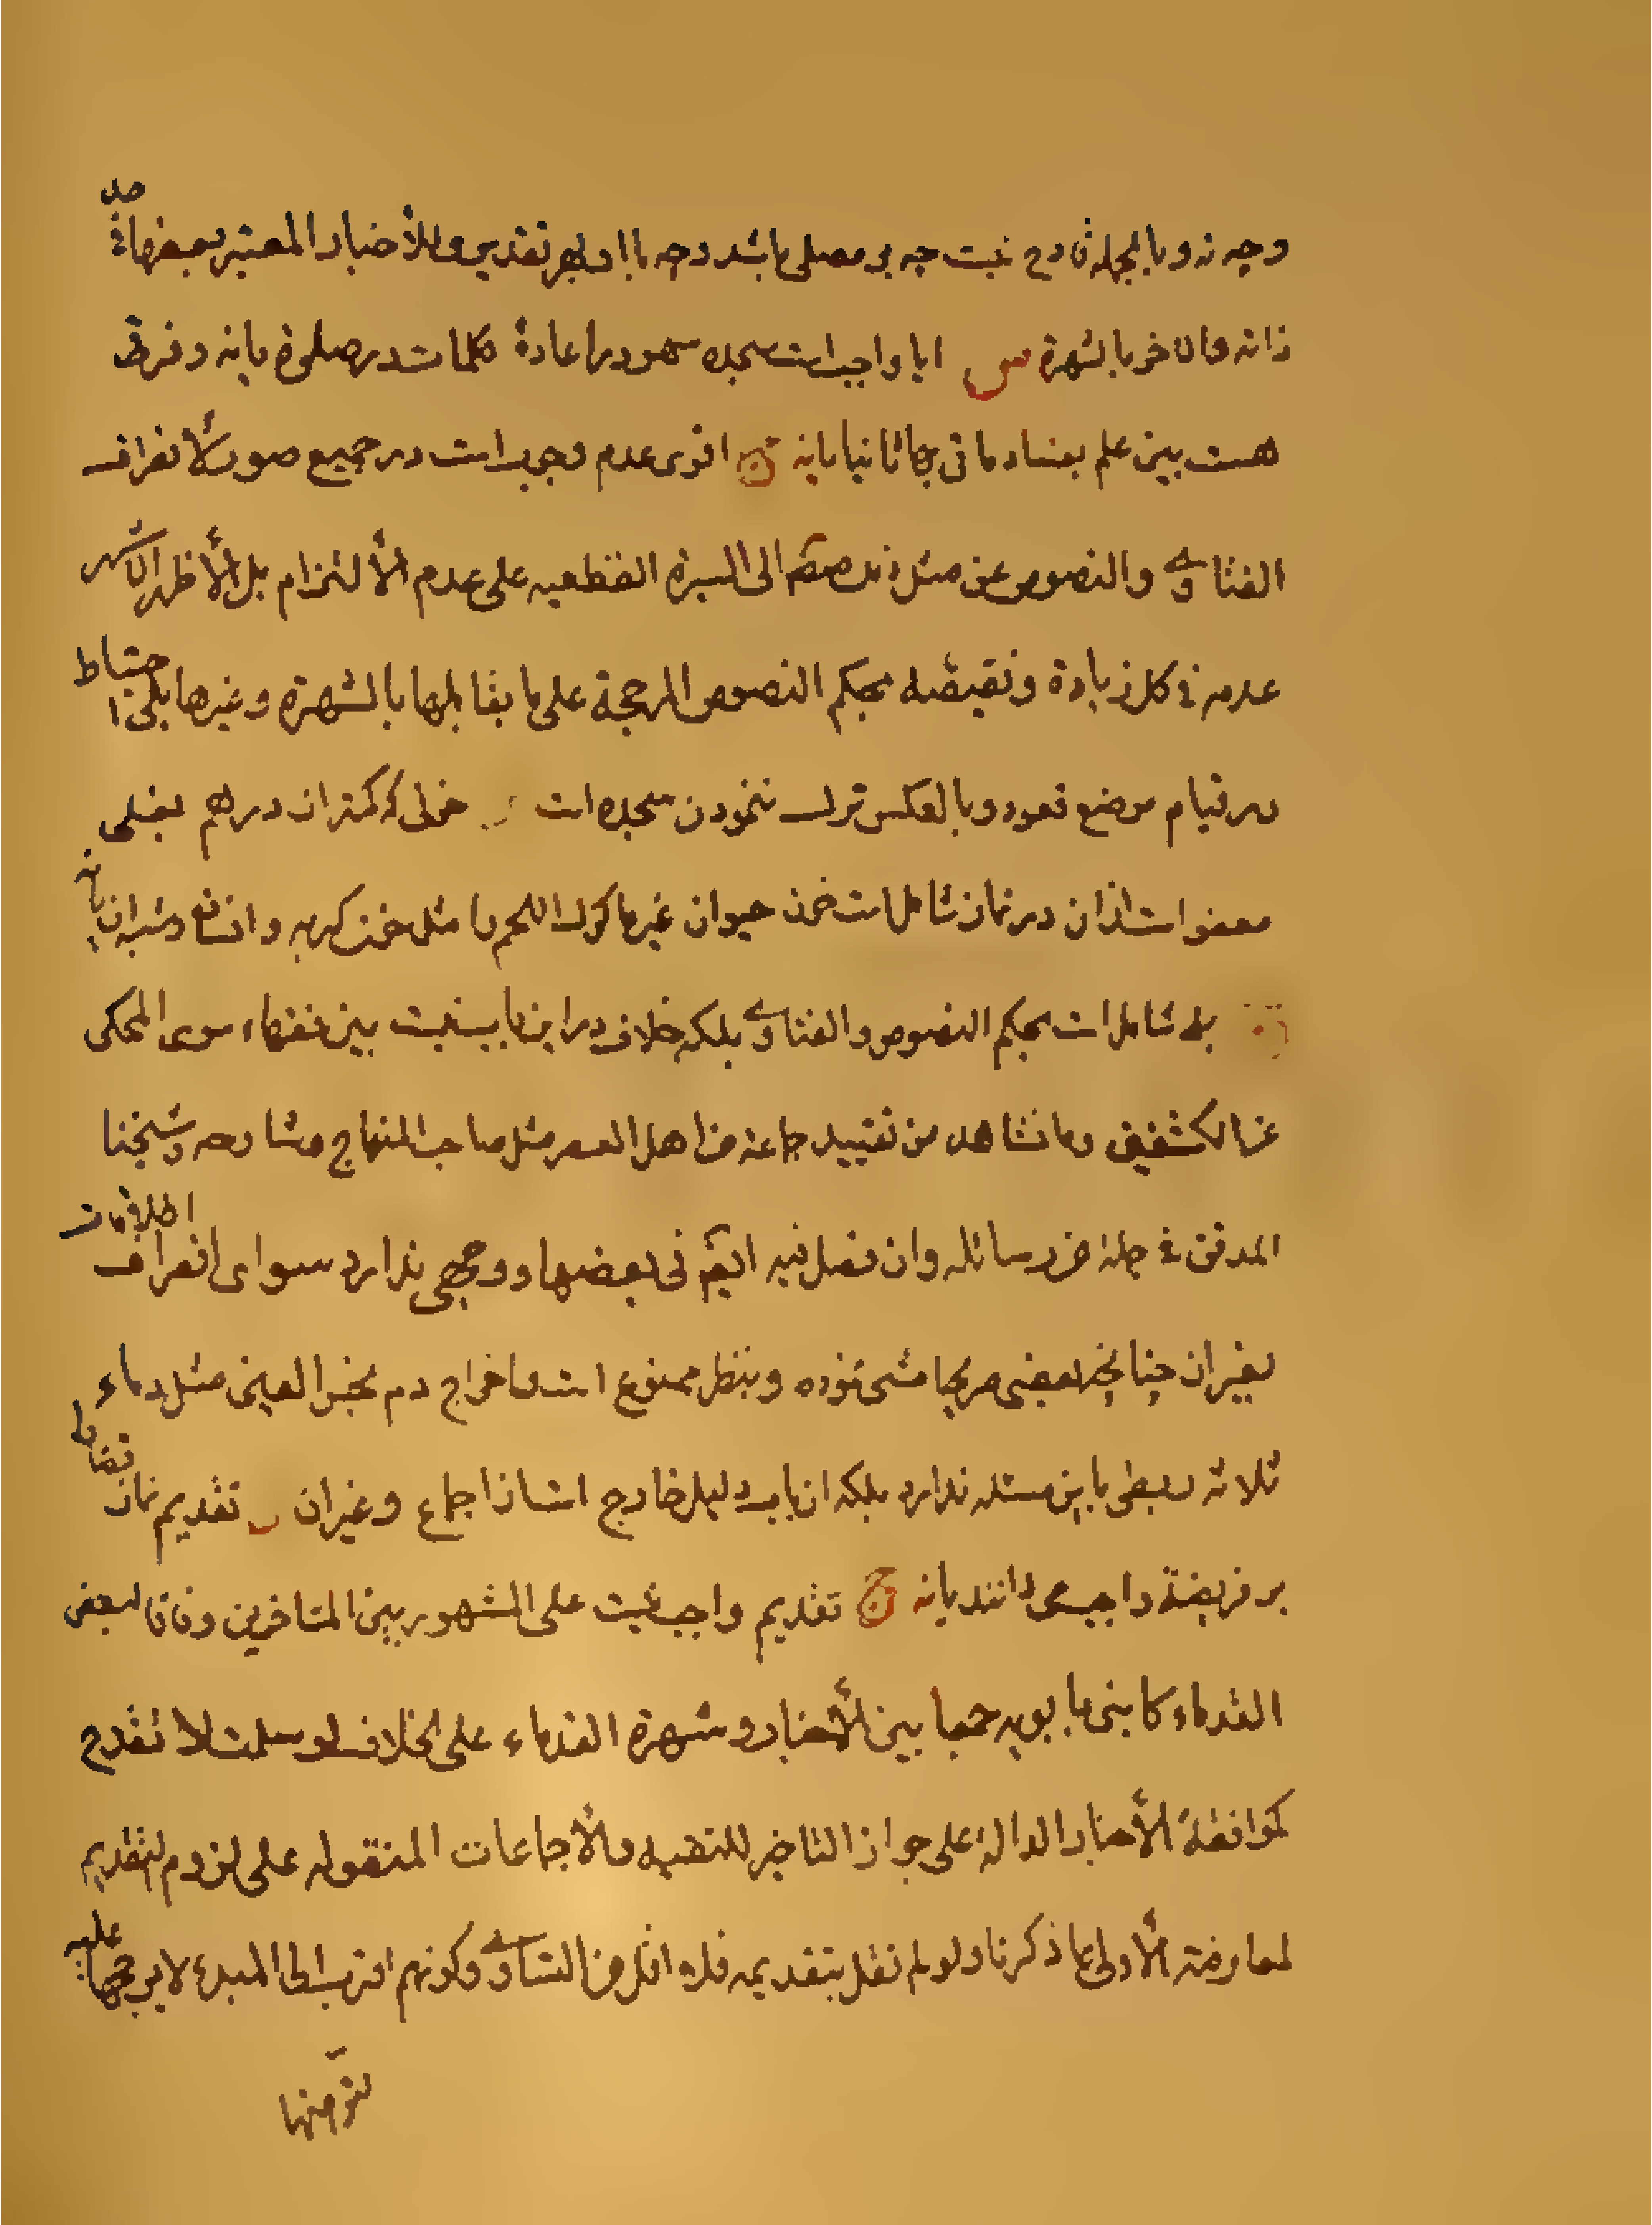 وجه نه وبالجمله قادح نیست چه بر مصلی باشد وچه با او بلهر تقدیر وللأخبار المعتبر بعضها فی حد
ذاته والاخر بالشهرة س ایا واجبست سجده سهو در اعادهٔ کلمات در صلوة یا نه وفرقی
هست بین علم بفساد ماتی بها ثانیا یا نه ج اقوی عدم وجوب است در جمیع صور لأنصراف
الفتاوی والنصوص عن مثل ذلك منضمّا الی السیرة القطعیه علی عدم الألتزام بل الأظهر الأشهر
عدمه فی کل زیادة ونقیصه بحکم النصوص المرجحة علی ما یقابلها بالشهرة وغیرها بلی احتیاط
در قیام موضع قعود وبالعکس ترك ننمودن سجده است س خونی که کمتر از درهم بغلی
معفو است از ان در نماز شامل است خون حیوان غیر ماکول اللحم را مثل خون کربه وانسان وشبه ان یا نه
ج بلی شامل است بحکم النصوص والفتاوی بلکه خلاف در این باب نیست بین فقهاء سوی المحکی
عن الکشفین وما نشاهد من تقیید جماعة من اهل العصر مثل صاحب المنهاج وشارحه وشیخنا
المدقق فی جملة من رسائله وان فصل فیه ایضا فی بعضها ووجهی ندارد سوای انصراف اطلاقات
بغیر ان چنانچه بعضی صریحا مشی نموده وبنظر ممنوع است واخراج دم نجس العین مثل دماء
ثلاثه ربطی باین مسئله ندارد بلکه از باب دلیل خارج است از اجماع وغیر ان س تقدیم نماز قضا را
بر فریضة واجب می دانند یا نه ج تقدیم واجب نیست علی المشهور بین المتاخرین وفاقا لبعض
القدماء کابنی بابویه جمعا بین الأخبار وشهرة القدماء علی الخلاف لو سلمت لا تقدح
کموافقة الأخبار الدالة علی جواز التاخیر للتقیه والأجماعات المنقوله علی لزوم التقدیم
لمعارضة الأولی بما ذکرنا ولو لم نقل بتقدیمه فلا اقل من التساوی وکونهم اقرب الی المبدء لا یوجبها علیه
لقومنها